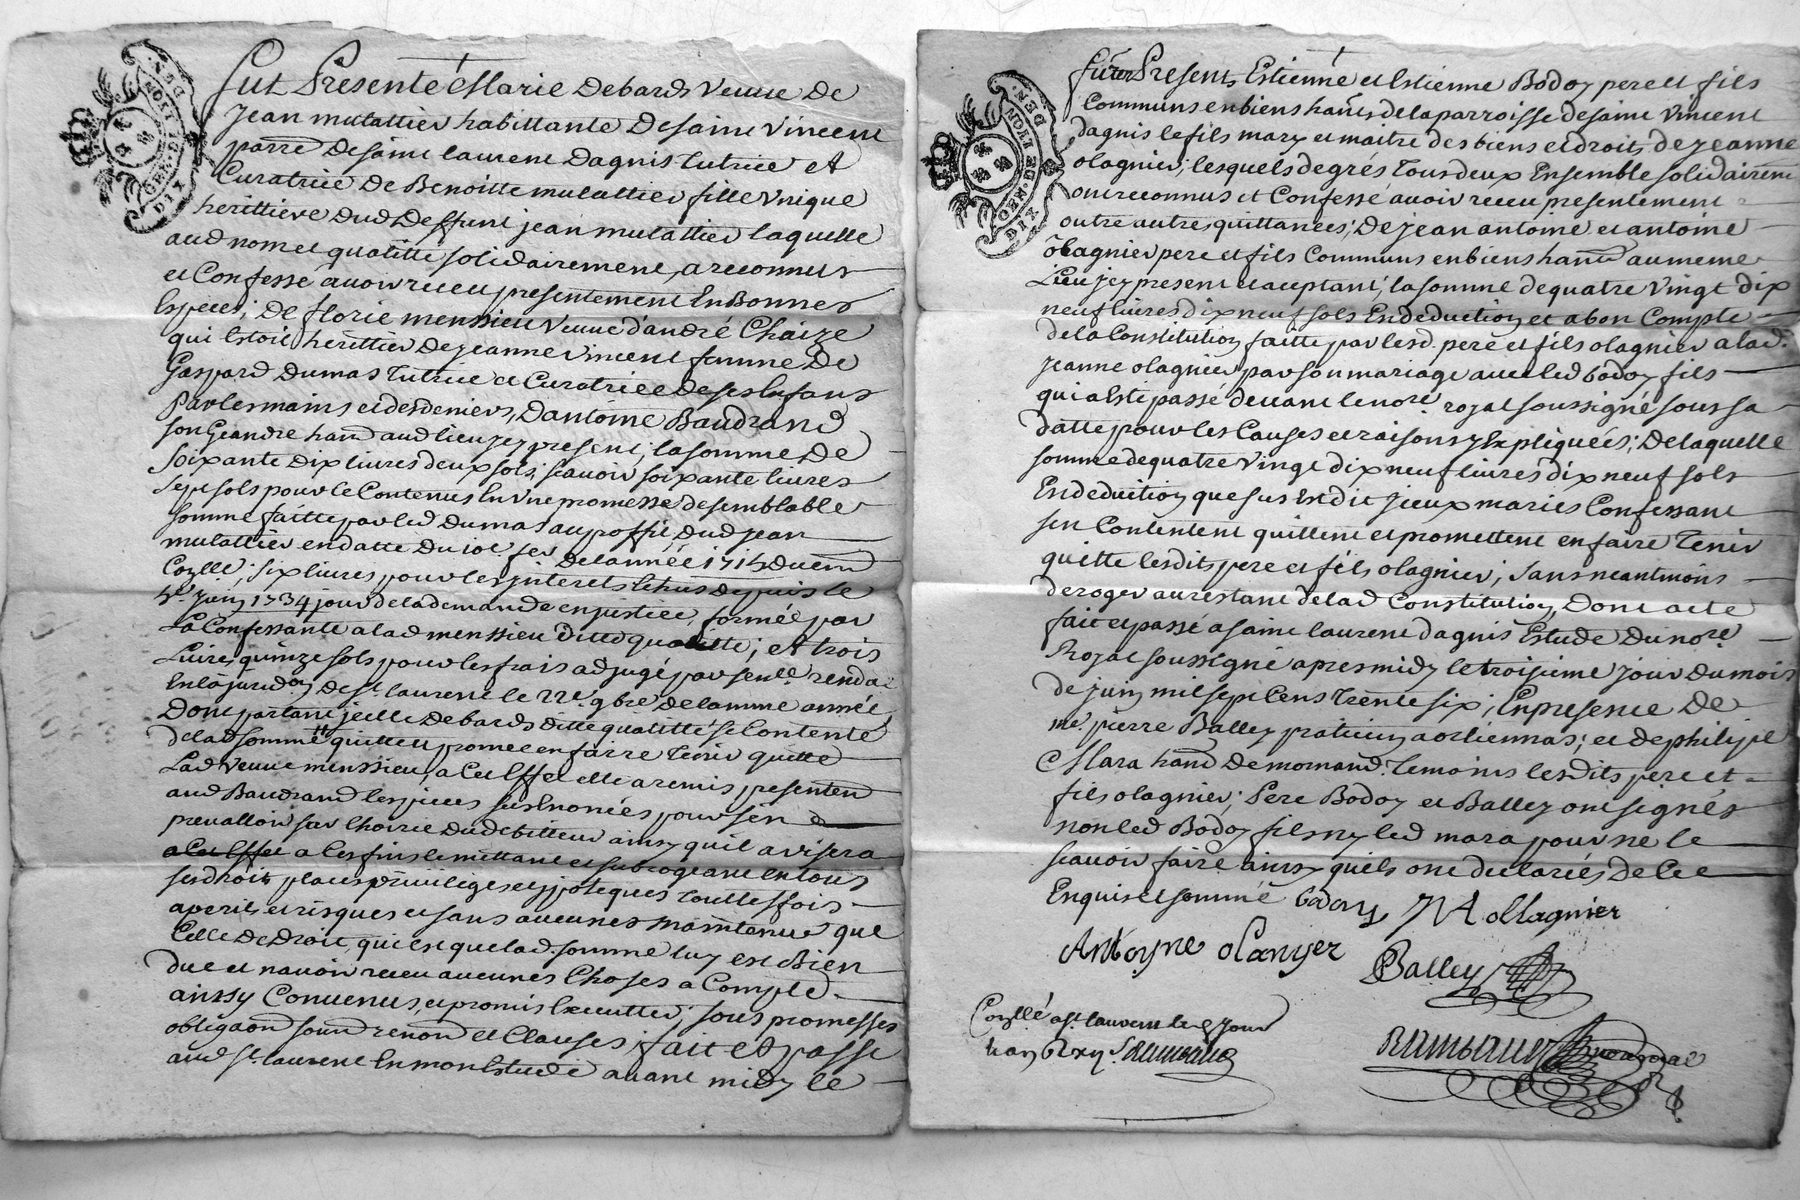 GEN. DE LYON.
DIX
Fut Presente Marie Debards veuve De
Jean mulattier habittante De saint vincent
parre De saint laurent Dagnis tutrice et
Curatrice De Benoitte mulattier fille unique
herittiere dud Deffunt jean mulattier laquelle
aud nom et qualitté solidairement, a reconnus
et Confessé avoir receu presentement En Bonnes
Especes; De florie menssieu veuve d'andré Chaize
qui Estoit herittier De jeanne vincent femme De
Gaspard Dumas tutrice et Curatrice de ses Enfans
Par les mains et des deniers, D'antoine Baudrand
son Geandre hand aud lieu jcy present; la somme De
Soixante Dix livres deux sols; scavoir soixante livres
sept sols pour le Contenus En une promesse de semblable
somme faitte par led Dumas au proffit dud jean
mulattier en datte du De l'année 1715
Cozlle; six livres pour les jnterets Echus depuis le
juin 1734 jour de la demande en justice, formée par
La Confessante a lad menssieu ditte qualitté; et trois
Livres quinze sols pour les frais adjugé par sence. rendue
En la juridon De st. laurent le 22e. 9bre de la mme année
Dont partant jcelle Debards ditte qualitté se Contente
de lad somme quitte et promet en faire tenir quitte
Lad veuve menssieu, a Cet Effet elle a remis presentemt
aud Baudrand les pieces sus Enoncés pour s'en
prevalloir sur l'hoirie du debitteur ainsy quil avisera
a Cet Effet a Ces fins le mettant et subrogeant en tous
ses droits places privileges et ypoteques touttesfois
a perils et risques et sans aucunes maintenue que
Celle De Droit, qui est que lad. somme luy est Bien
due et n'avoir receu aucunes Choses a Compte
ainsy Convenus, et promis Executter; sous promesses
obligaon soum renon et Clauses; fait et passé
aud St. laurent En mon Estude avant midy le
GEN. DE LYON.
DIX
furen Presents Estienne et Estienne Bodoy pere et fils
Communs en biens hants de la parroisse de saint vincent
Dagnis le fils mary et maitre des biens et droits de jeanne
olagnier; lesquels de grés tous deux Ensemble solidairement
ont reconnus et Confessé avoir receu presentement
outre autre quittances; De jean antoine et antoine
olagnier pere et fils Communs en biens hants au meme
Lieu jcy present et aceptant, la somme de quatre vingt dix
neuf livres dix neuf sols En deduction et a bon Compte
de la Constitution faitte par lesd. pere et fils olagnier a lad.
jeanne olagnier par son mariage avec led bodoy fils
qui a Esté passé devant le nore. royal soussigné sous sa
datte pour les Causes et raisons y Expliquées; De laquelle
somme de quatre vingt dix neuf livres dix neuf sols
En deduction que sus Est dit jceux mariés Confessant
s'en Contentent quittent et promettent en faire tenir
quitte lesdits pere et fils olagnier; sans neantmoins
deroger au restant de lad Constitution Dont acte
fait et passé a saint laurent dagnis Estude du nore
Royal soussigné apres midy le troisieme jour du mois
de juin mil sept Cens trente six; En presence De
me. pierre Balley praticien a orliennas; et de philipe
Mara hand De mornand. temoins lesdits pere et
fils olagnier; Pere Bodoy et Balley ont signés
non led Bodoy fils ny led mara pour ne le
scavoir faire ainsy quils ont declarés de Ce
Enquis et sommé bodoy J A ollagnier
Antoyne olanyer
Balley
Conllé a st. laurent le